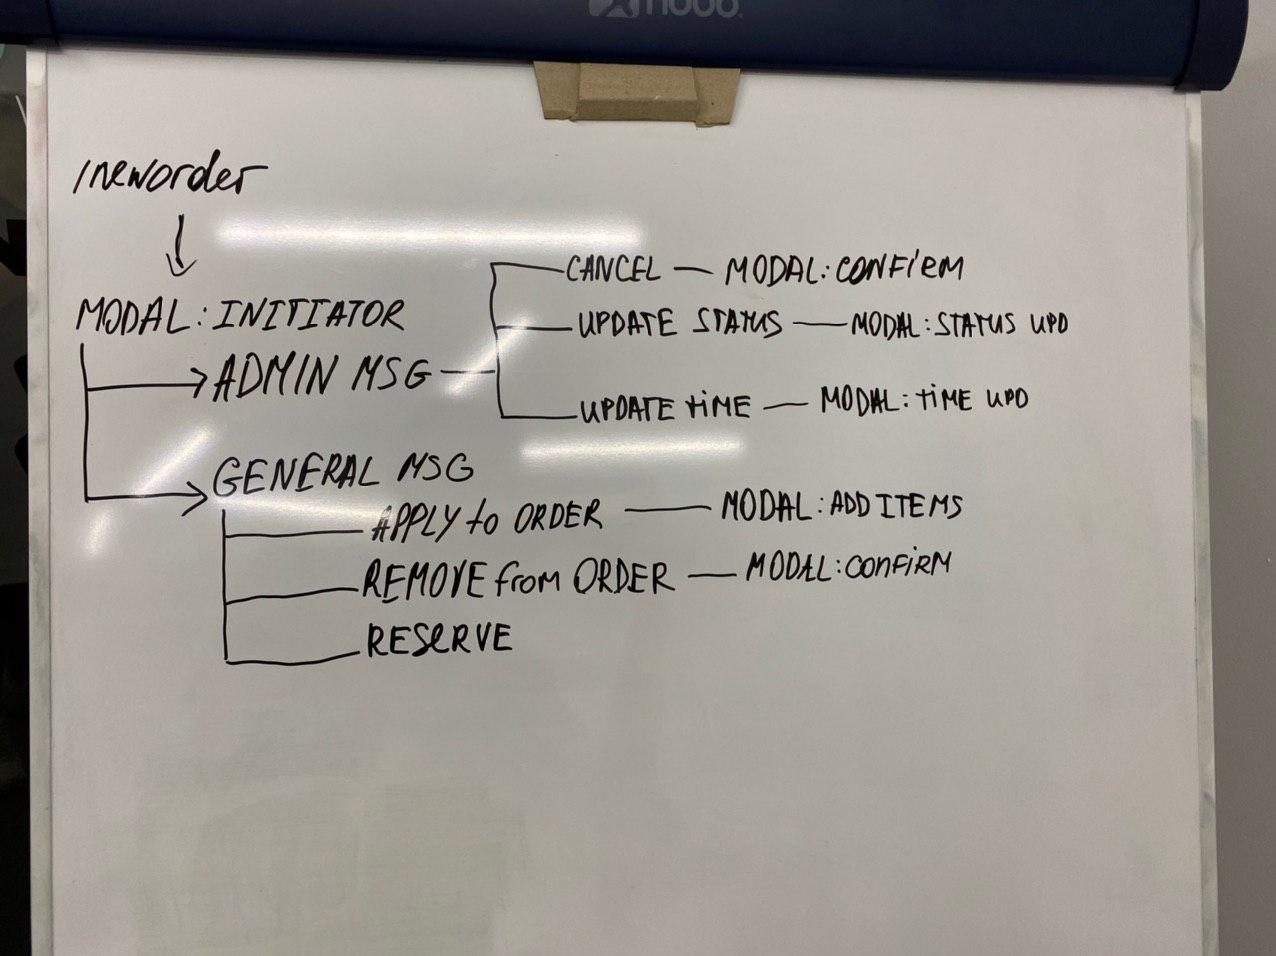 /neworder
MODAL: INITIATOR
ADMIN MSG
CANCEL — MODAL: CONFIRM
UPDATE STATUS — MODAL: STATUS UPD
UPDATE TIME — MODAL: TIME UPD
GENERAL MSG
APPLY to ORDER — MODAL: ADD ITEMS
REMOVE from ORDER — MODAL: CONFIRM
RESERVE